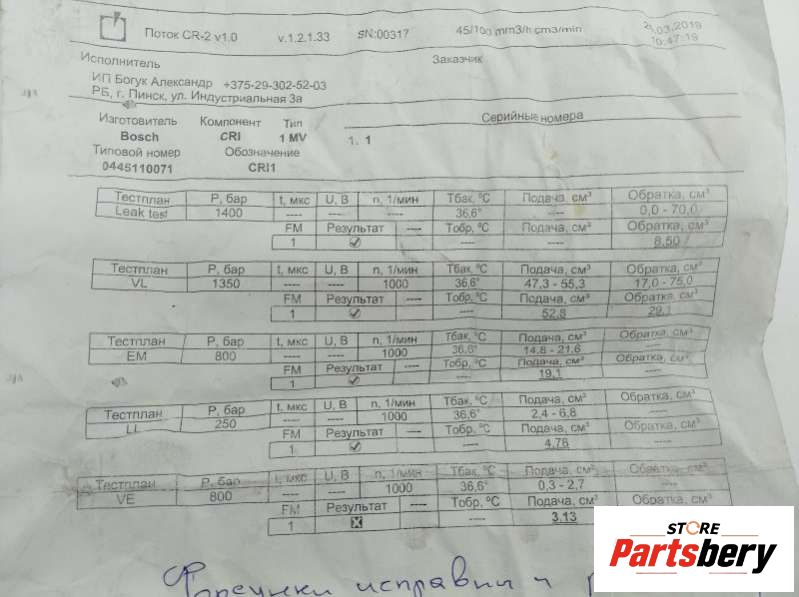 Поток CR-2 v1.0 v.1.2.1.33 SN:00317 45/100 mm3/h cm3/min .03.2019
:47:19
Исполнитель Заказчик
ИП Богук Александр +375-29-302-52-03
РБ, г. Пинск, ул. Индустриальная 3а
Изготовитель Компонент Тип Серийные номера
Bosch CRI 1 MV 1. 1
Типовой номер Обозначение
0445110071 CRI1
Тестплан P, бар t, мкс U, В n, 1/мин Тбак, ºC Подача, см³ Обратка, см³
Leak test 1400 ---- ---- ---- 36,6° ---- 0,0 - 70,0
FM Результат ---- Тобр, ºC Подача, см³ Обратка, см³
1 ☑ ---- ---- 8,50
Тестплан P, бар t, мкс U, В n, 1/мин Тбак, ºC Подача, см³ Обратка, см³
VL 1350 ---- ---- 1000 36,6° 47,3 - 55,3 17,0 - 75,0
FM Результат ---- Тобр, ºC Подача, см³ Обратка, см³
1 ☑ ---- 52,8 29,1
Тестплан P, бар t, мкс U, В n, 1/мин Тбак, ºC Подача, см³ Обратка, см³
EM 800 ---- ---- 1000 36,6° 14,8 - 21,6 ----
FM Результат ---- Тобр, ºC Подача, см³ Обратка, см³
1 ☑ ---- 19,1 ----
Тестплан P, бар t, мкс U, В n, 1/мин Тбак, ºC Подача, см³ Обратка, см³
LL 250 ---- ---- 1000 36,6° 2,4 - 6,8 ----
FM Результат ---- Тобр, ºC Подача, см³ Обратка, см³
1 ☑ ---- 4,78 ----
Тестплан P, бар t, мкс U, В n, 1/мин Тбак, ºC Подача, см³ Обратка, см³
VE 800 ---- ---- 1000 36,6° 0,3 - 2,7 ----
FM Результат ---- Тобр, ºC Подача, см³ Обратка, см³
1 ☒ ---- 3,13
Форсунки исправни
STORE
Partsbery